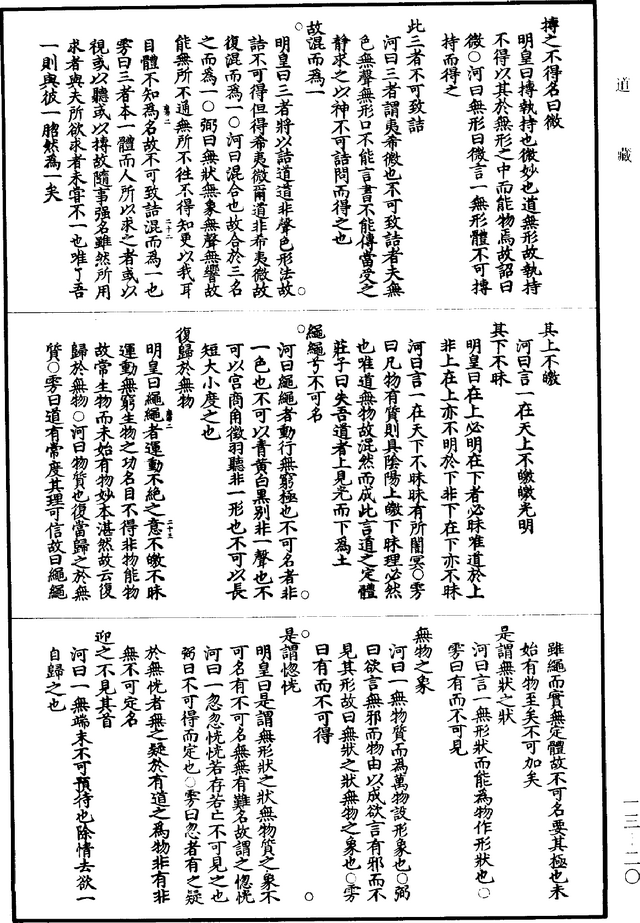 道藏
搏之不得名曰微
明皇曰搏執持也微妙也道無形故執持
不得以其於無形之中而能物焉故詔曰
微○河曰無形曰微言一無形體不可搏
持而得之
此三者不可致詰
河曰三者謂夷希微也不可致詰者夫無
色無聲無形口不能言書不能傳當受之
靜求之以神不可詰問而得之也
故混而為一
明皇曰三者將以詰道道非聲色形法故
詰不可得但得希夷微爾道非希夷微故
復混而為一○河曰混合也故合於三名
之而為一○弼曰無狀無象無聲無響故
能無所不通無所不往不得知更以我耳
目體不知為名故不可致詰混而為一也
雱曰三者本一體而人所以求之者或以
視或以聽或以摶故隨事强名雖然所用
求者與夫所欲求者未甞不一也唯了吾
一則與彼一脗然為一矣
其上不皦
河曰言一在天上不皦皦光明
其下不昧
明皇曰在上必明在下者必昧唯道於上
非上在上亦不明於下非下在下亦不昧
河曰言一在天下不昧昧有所闇冥○雱
曰凡物有質則具陰陽上皦下昧理必然
也唯道無物故混然而成此言道之定體
莊子曰失吾道者上見光而下為土
繩繩兮不可名
河曰繩繩者動行無窮極也不可名者非
一色也不可以青黃白黑别非一聲也不
可以宮商角徵羽聽非一形也不可以長
短大小度之也
復歸於無物
明皇曰繩繩者運動不絶之意不皦不昧
運動無窮生物之功名目不得非物能物
故常生物而未始有物妙本湛然故云復
歸於無物○河曰物質也復當歸之於無
質○雱曰道有常度其理可信故曰繩繩
雖繩而實無定體故不可名要其極也未
始有物至矣不可加矣
是謂無狀之狀
河曰言一無形狀而能為物作形狀也○
雱曰有而不可見
無物之象
河曰一無物質而為萬物設形象也○弼
曰欲言無邪而物由以成欲言有邪而不
見其形故曰無狀之狀無物之象也○雱
曰有而不可得
是謂惚恍
明皇曰是謂無形狀之狀無物質之象不
可名有不可名無無有難名故謂之惚恍
河曰一忽忽恍恍若存若亡不可見之也
弼曰不可得而定也○雱曰忽者有之疑
於無恍者無之疑於有道之為物非有非
無不可定名
迎之不見其首
河曰一無端末不可預待也除情去欲一
自歸之也
一三-二〇